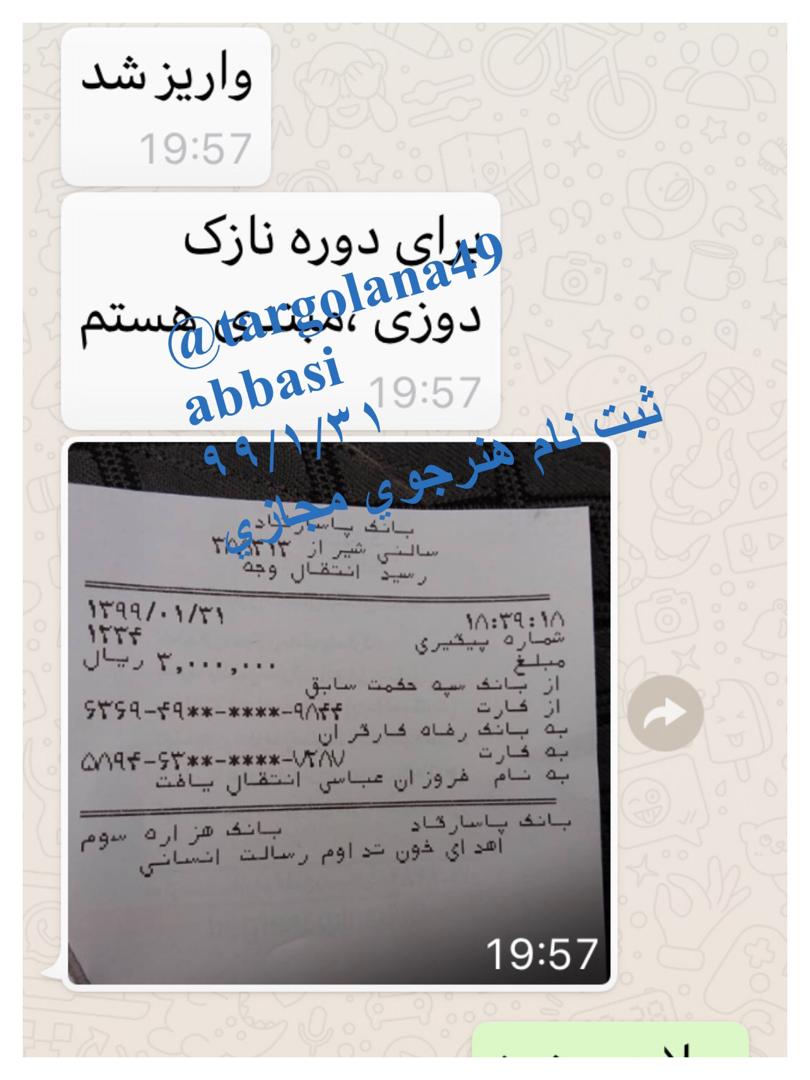 واریز شد
19:57
برای دوره نازک
دوزی ،مبتدی هستم
19:57
@targolana49
abbasi
۹۹/۱/۳۱
ثبت نام هنرجوي مجازي
بانک پاسارگاد
سالني شیراز
رسید انتقال وجه
۱۳۹۹/۰۱/۳۱ ۱۸:۳۹:۱۸
شماره پیگیري ۱۲۳۴
مبلغ ۳,۰۰۰,۰۰۰ ریال
از بانک سپه حکمت سابق
از کارت ۶۳۶۹-۴۹**-****-۹۸۴۴
به بانک رفاه کارگران
به کارت ۵۸۹۴-۶۳**-****-۷۲۸۷
به نام فروزان عباسي انتقال یافت
بانک پاسارگاد بانک هزاره سوم
اهداي خون تداوم رسالت انساني
19:57